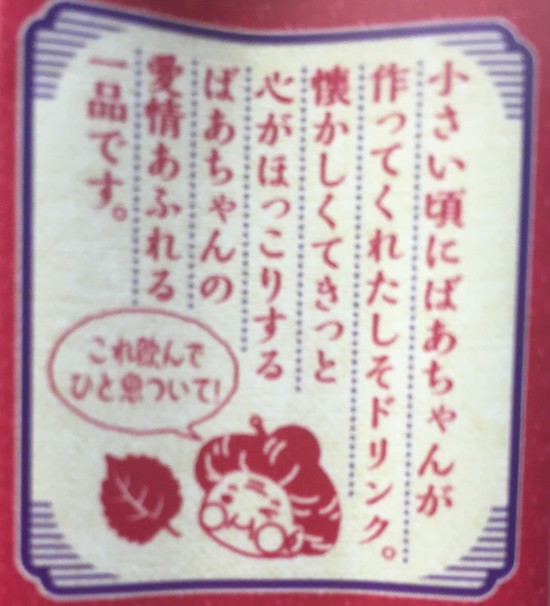 小さい頃にばあちゃんが
作ってくれたしそドリンク。
懐かしくてきっと
心がほっこりする
ばあちゃんの
愛情あふれる
一品です。
これ飲んで
ひと息ついて!